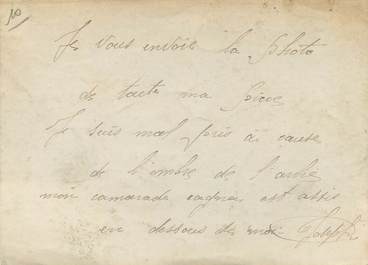 Je vous envoie la photo
de toute ma pièce
Je suis mal pris à cause
de l'ombre de l'arbre
mon camarade cagnac est assis
en dessous de moi Joseph